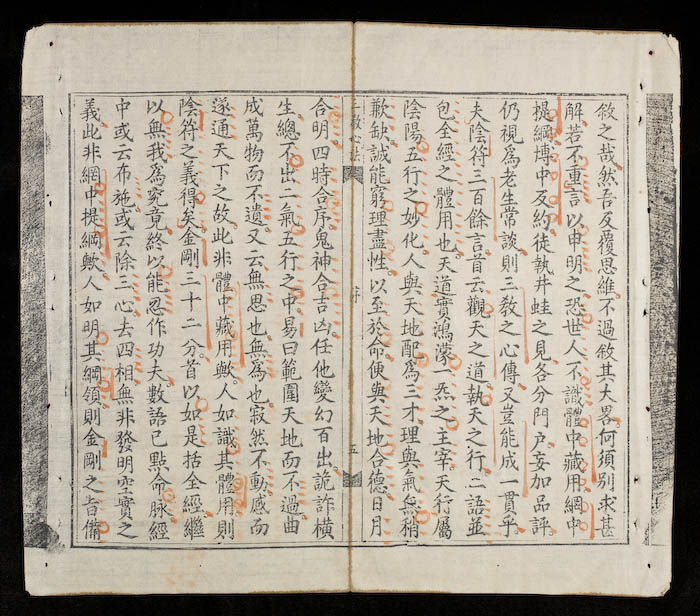 敘之哉。然吾反覆思維。不過敘其大畧。何須別求甚
解。若不重言以申明之。恐世人不識體中藏用。綱中
提綱。博中反約。徒執井蛙之見。各分門戶。妄加品評。
仍視為老生常談。則三教之心傳。又豈能成一貫乎。
夫陰符三百餘言。首云觀天之道。執天之行。二語並
包全經之體用也。天道實鴻濛一炁之主宰。天行屬
陰陽五行之妙化。人與天地配為三才。理與氣無稍
歉缺。誠能窮理盡性。以至於命。便與天地合德。日月
三教心法
序
五
合明。四時合序。鬼神合吉凶。任他變幻百出。詭詐橫
生。總不出二氣五行之中。易曰範圍天地而不過。曲
成萬物而不遺。又云無思也。無為也。寂然不動。感而
遂通天下之故。此非體中藏用歟。人如識其體用。則
陰符之義得矣。金剛三十二分。首以如是括全經。繼
以無我為究竟。終以能忍作功夫。數語已點命脉。經
中或云布施。或云除三心。去四相。無非發明空實之
義。此非綱中提綱歟。人如明其綱領。則金剛之旨備